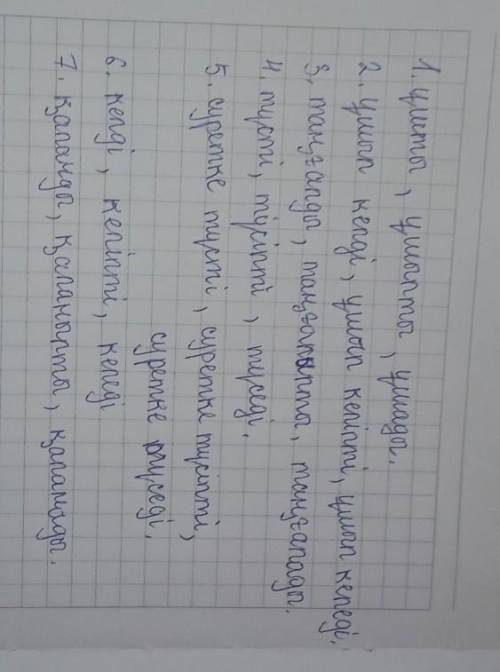 1. ұшты, ұшыпты, ұшады.
2. ұшып келді, ұшып келіпті, ұшып келеді.
3. таңғалды, таңғалыпты, таңғалады.
4. түсті, түсіпті, түседі.
5. суретке түсті, суретке түсіпті,
суретке түседі.
6. келді, келіпті, келеді
7. қаланды, қаланыпты, қаланады.